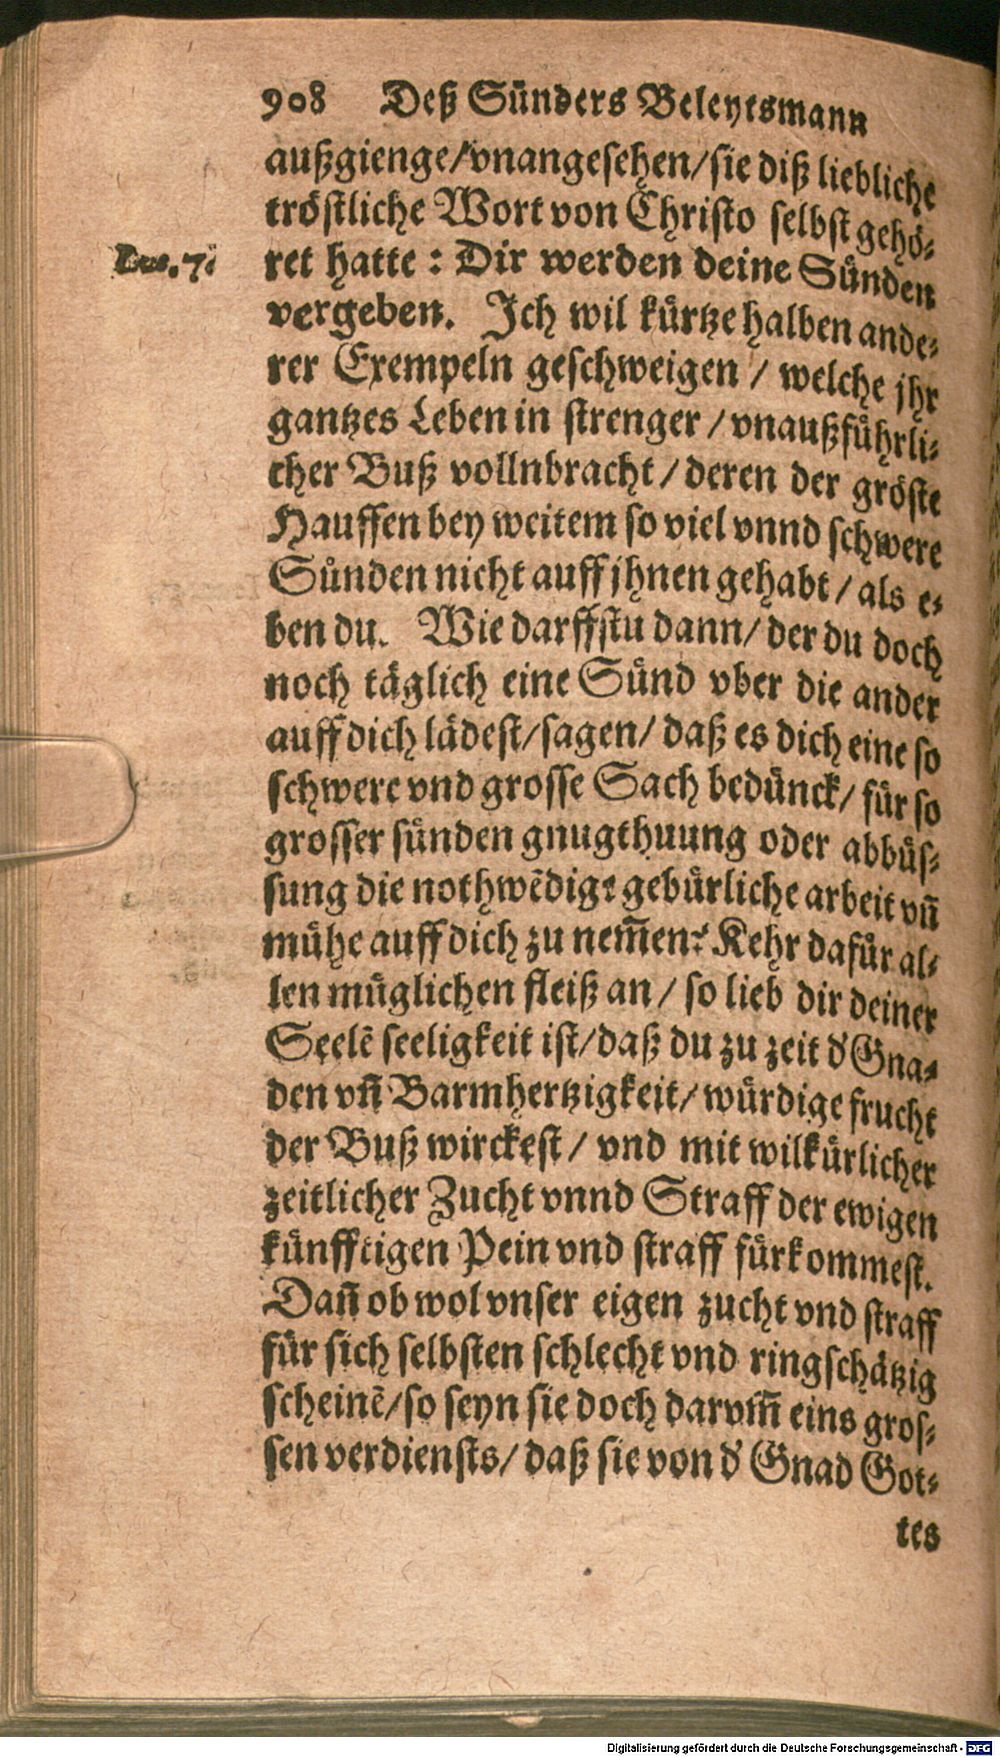 908 Deß Sünders Beleytsmann
außgienge/vnangesehen/sie diß liebliche
tröstliche Wort von Christo selbst gehö-
Luc. 7.
ret hatte: Dir werden deine Sünden
vergeben. Ich wil kürtze halben ande-
rer Exempeln geschweigen / welche jhr
gantzes Leben in strenger / vnaußführli-
cher Buß vollnbracht / deren der gröste
Hauffen bey weitem so viel vnnd schwere
Sünden nicht auff jhnen gehabt / als e-
ben du. Wie darffstu dann/ der du doch
noch täglich eine Sünd vber die ander
auff dich lädest/sagen/ daß es dich eine so
schwere vnd grosse Sach bedünck/ für so
grosser sünden gnugthuung oder abbüs-
sung die nothwẽdige gebürliche arbeit vñ
mühe auff dich zu nem̃en? Kehr dafür al-
len müglichen fleiß an / so lieb dir deiner
Seelẽ seeligkeit ist/daß du zu zeit d' Gna-
den vñ Barmhertzigkeit/ würdige frucht
der Buß wirckest / vnd mit wilkürlicher
zeitlicher Zucht vnnd Straff der ewigen
künfftigen Pein vnd straff fürkommest.
Dañ ob wol vnser eigen zucht vnd straff
für sich selbsten schlecht vnd ringschätzig
scheinẽ/so seyn sie doch darvm̃ eins gros-
sen verdiensts/ daß sie von d' Gnad Got-
tes
Digitalisierung gefördert durch die Deutsche Forschungsgemeinschaft - DFG